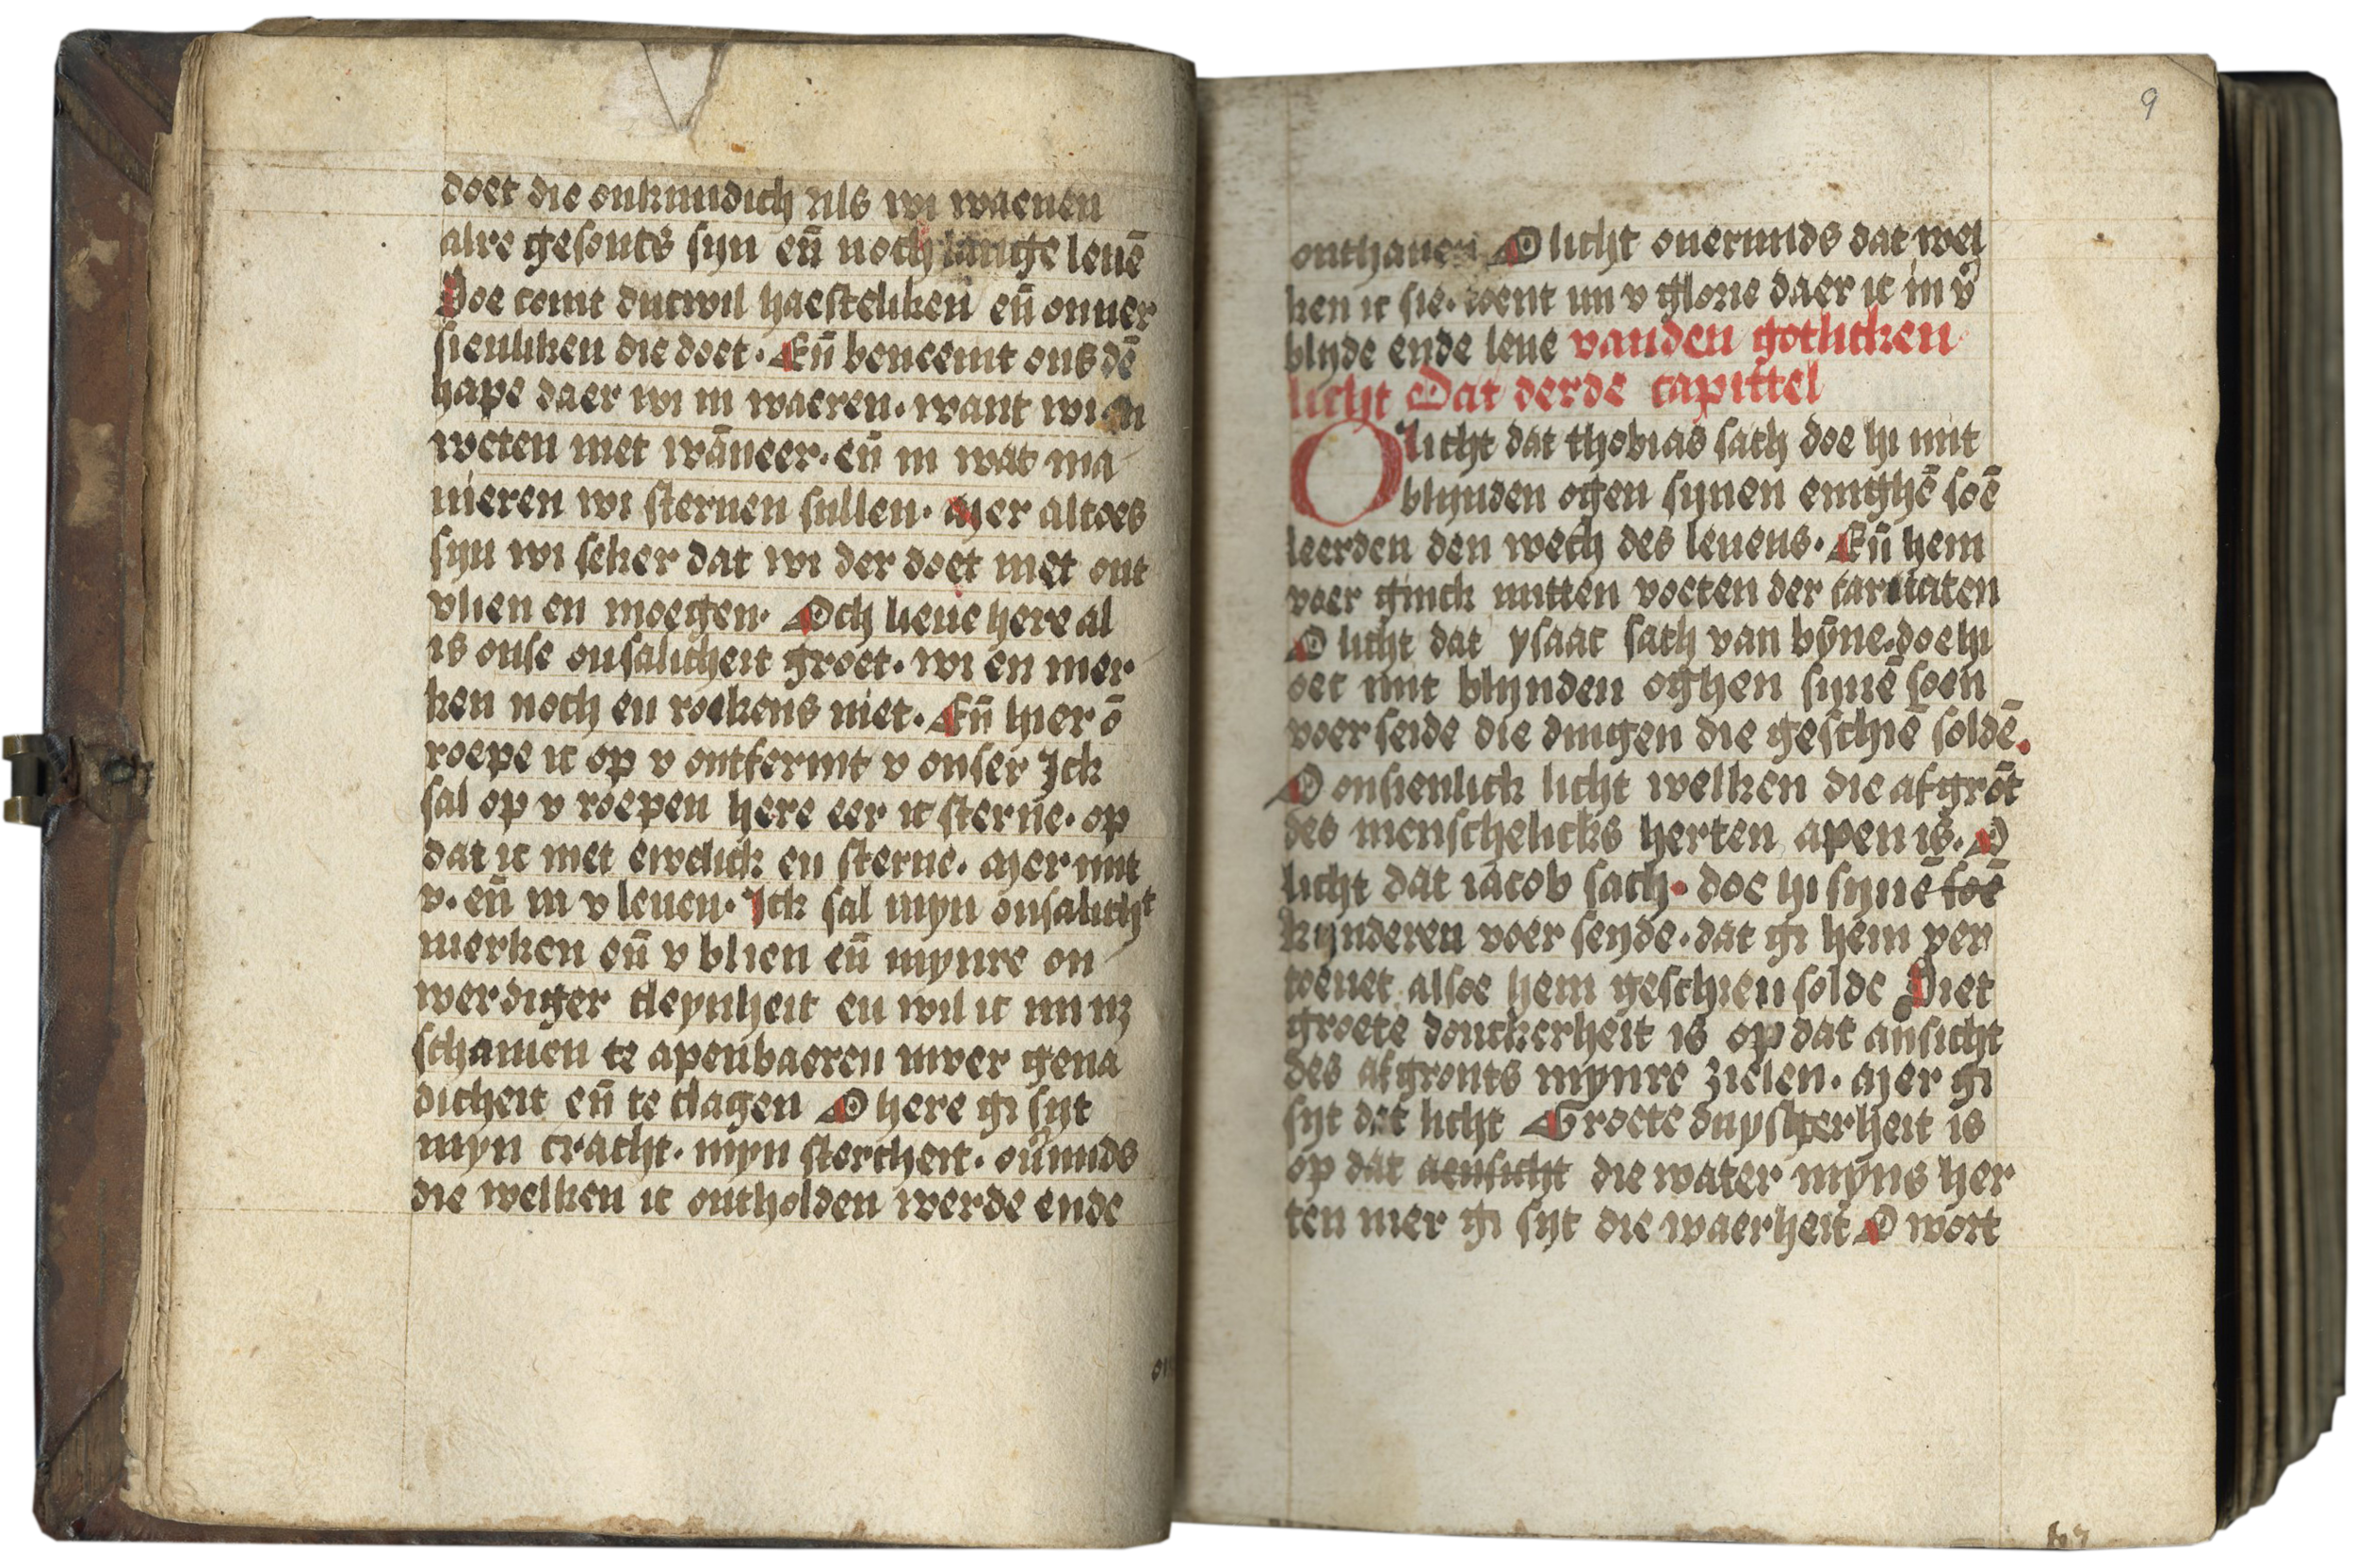 doet die onkundich als wi waenen
alre gesonts syn eñ noch lange leuē
Soe comt dutwil haesteliken eñ onuer
sienliken die doet· Eñ beneemt ons dē
hape daer wi in waeren· want wi en
weten niet wāneer· eñ in wat ma
nieren wi steruen sullen· Mer altoes
syn wi seker dat wi der doet niet ont
vlien en moegen· Och lieue here al
is onse onsalicheit groet· wi en mer
ken noch en roekens niet· Eñ hier ō
roepe ic op v ontfermt v onser Ick
sal op v roepen here eer ic sterue· op
dat ic niet ewelick en sterue· Mer mit
v· eñ in v leuen· Ick sal myn onsalicht
merken eñ v blien eñ mynre on
werdiger cleynheit en wil ic mi nz
schamen te apenbaeren uwer gena
dicheit eñ te clagen O here gi syt
myn cracht· myn stercheit· ouмids
die welken ic ontholden werde ende
9
onthauen O licht ouermids dat wel
ken ic sie· toent mi v glorie daer ic in v
blyde ende leue vanden gotlicken
licht Dat derde capittel
O licht dat thobias sach doe hi mit
blynden ogen synen enighē soē
leerden den wech des leuens· Eñ hem
voer ginck mitten voeten der caritaten
O licht dat ysaac sach van bȳne· doe hi
oec mit blynden oghen synē soen
voer seide die dingen die geschiē soldē.
O onsienlick licht welken die afgrōt
des menschelicks herten apen is· O
licht dat iacob sach· doe hi synē soē
kynderen voer seyde· dat gi hem ver
toenet alsoe hem geschien solde Siet
groete donckerheit is op dat ansicht
des afgronts mynre zielen· Mer gi
syt dat licht Groete duysterheit is
op dat aensicht die water myns her
ten mer gi syt die waerheit O wort